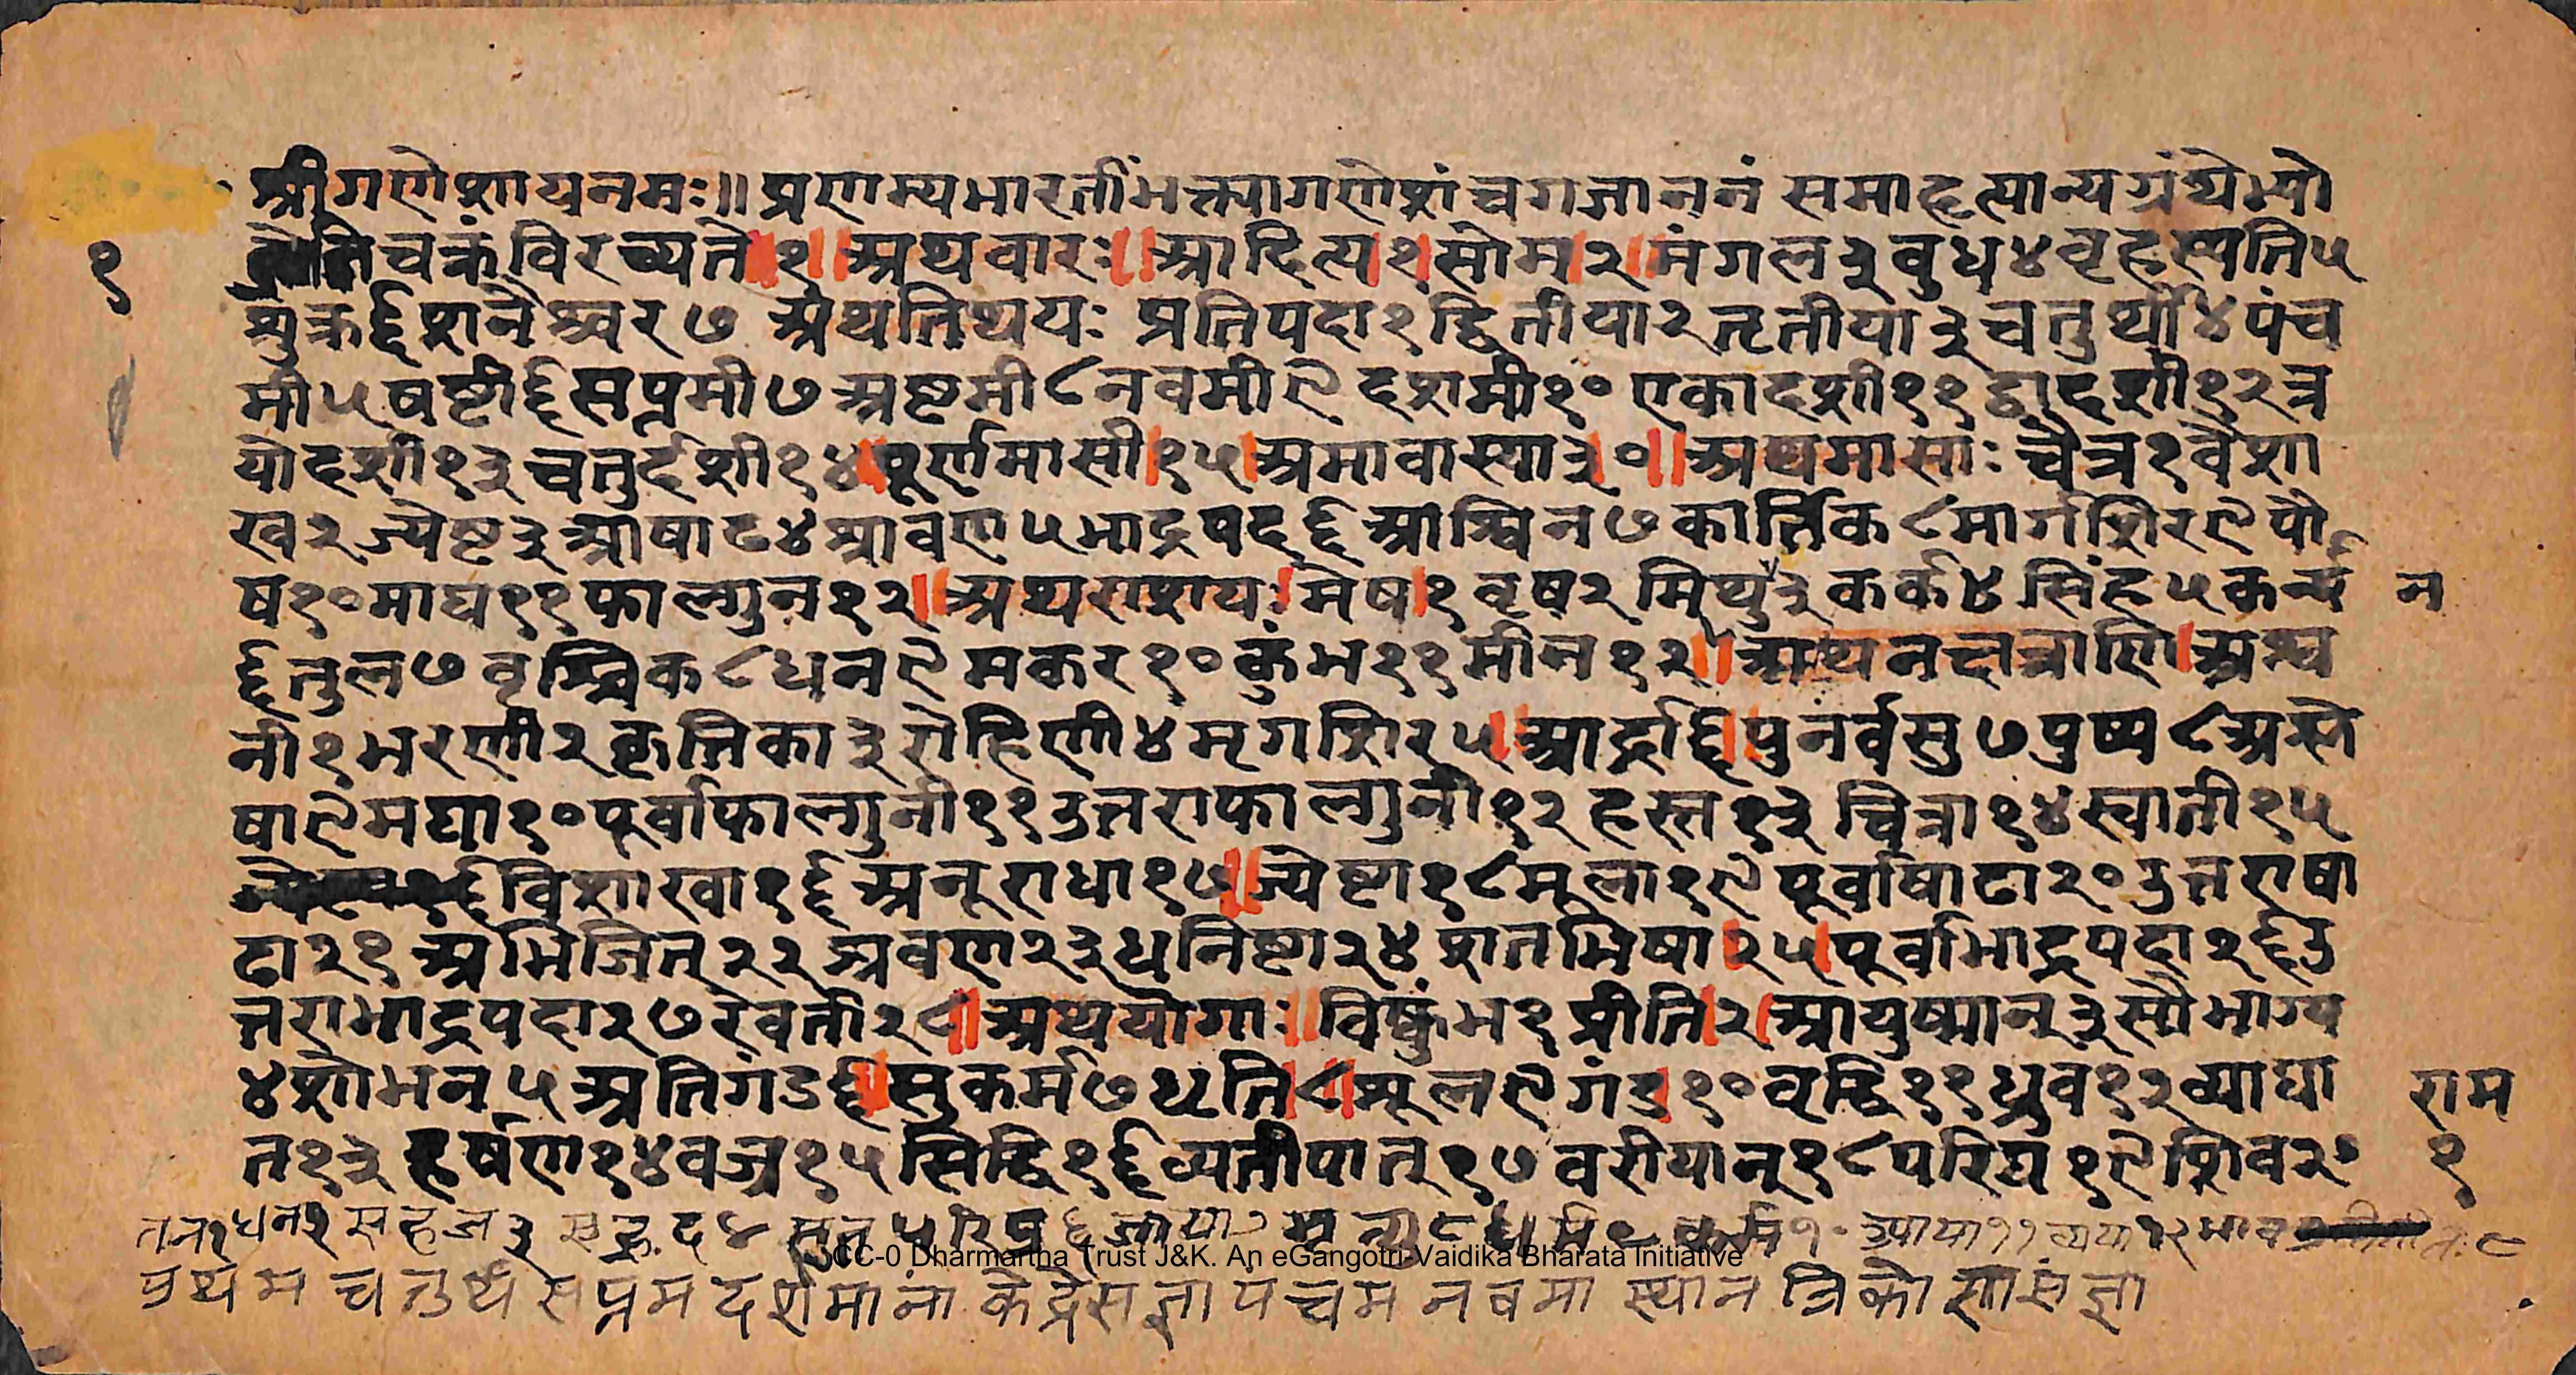 श्रीगणेशायनमः॥ प्रणम्यभारतींभक्त्यागणेशंचगजाननं समाहृत्यान्यग्रंथेभ्यो
चक्रंविरच्यते॥१॥अथवारः॥आदित्य१सोम२॥मंगल३बुध४बृहस्पति५
शुक्र६शनैश्चर७ अथतिथयः प्रतिपदा१द्वितीया२तृतीया३चतुर्थी४पंच
मी५षष्टी६सप्तमी७अष्टमी८नवमी९दशमी१०एकादशी११द्वादशी१२त्र
योदशी१३चतुर्दशी१४पूर्णमासी१५अमावास्या३०॥अथमासाः चैत्र१वैशा
ख२ज्येष्ट३आषाढ४श्रावण५भाद्रपद६आश्विन७कार्त्तिक८मार्गशिर९पौ
ष१०माघ११फाल्गुन१२॥अथराशयः।मेष१वृष२मिथु३कर्क४सिंह५कन्या
न
६तुल७वृश्चिक८धन९मकर१०कुंभ११मीन१२॥अथनक्षत्राणि।अश्व
नी१भरणी२कृत्तिका३रोहिणी४मृगशिर५॥आर्द्रा६॥पुनर्वसु७पुष्य८अश्ले
षा९मघा१०पूर्वाफाल्गुनी११उत्तराफाल्गुनी१२हस्त१३चित्रा१४स्वाती१५
विशाखा१६अनूराधा१७॥ज्येष्टा१८मूला१९पूर्वाषाढा२०उत्तराषा
ढा२१अभिजित्२२श्रवण२३धनिष्टा२४शतभिषा२५पूर्वाभाद्रपदा२६उ
त्तराभाद्रपदा२७रेवती२८॥अथयोगाः॥विष्कुंभ१प्रीति२आयुष्मान्३सौभाग्य
४शोभन५अतिगंड६सुकर्म७धृति८॥शूल९गंड१०वृद्धि११ध्रुव१२व्याघा
राम
त१३हर्षण१४वज्र१५सिद्धि१६व्यतीपात्१७वरीयान्१८परिघ१९शिव२०
१
१
तन१धन२सहज३सुहृद४सुत५रिपु६जाया७मृत्यु८धर्म९कर्म१०उपाया११व्यया१२भाव
CC-0 Dharmartha Trust J&K. An eGangotri-Vaidika Bharata Initiative
प्रथम चतुर्थ सप्तम दशमानां केंद्रेसंज्ञा पंचम नवमा स्थान त्रिकोणासंज्ञा